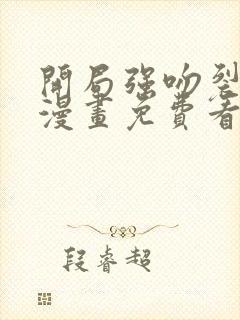 開局強吻裂
漫畫免費看
段睿超